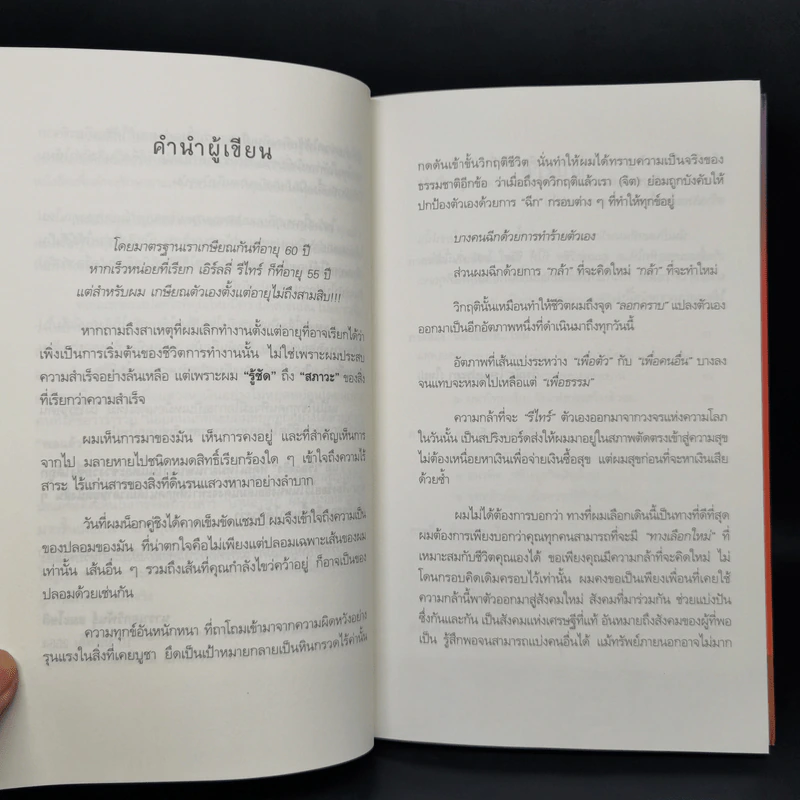 คำนำผู้เขียน
โดยมาตรฐานเราเกษียณกันที่อายุ 60 ปี
หากเร็วหน่อยที่เรียก เอิร์ลลี่ รีไทร์ ก็ที่อายุ 55 ปี
แต่สำหรับผม เกษียณตัวเองตั้งแต่อายุไม่ถึงสามสิบ!!!
หากถามถึงสาเหตุที่ผมเลิกทำงานตั้งแต่อายุที่อาจเรียกได้ว่า
เพิ่งเป็นการเริ่มต้นของชีวิตการทำงานนั้น ไม่ใช่เพราะผมประสบ
ความสำเร็จอย่างล้นเหลือ แต่เพราะผม “รู้ชัด” ถึง “สภาวะ” ของสิ่ง
ที่เรียกว่าความสำเร็จ
ผมเห็นการมาของมัน เห็นการคงอยู่ และที่สำคัญเห็นการ
จากไป มลายหายไปชนิดหมดสิทธิ์เรียกร้องใด ๆ เข้าใจถึงความไร้
สาระ ไร้แก่นสารของสิ่งที่ดิ้นรนแสวงหามาอย่างลำบาก
วันที่ผมน็อกคู่ชิงได้คาดเข็มขัดแชมป์ ผมจึงเข้าใจถึงความเป็น
ของปลอมของมัน ที่น่าตกใจคือไม่เพียงแต่ปลอมเฉพาะเส้นของผม
เท่านั้น เส้นอื่น ๆ รวมถึงเส้นที่คุณกำลังไขว่คว้าอยู่ ก็อาจเป็นของ
ปลอมด้วยเช่นกัน
ความทุกข์อันหนักหนา ที่ถาโถมเข้ามาจากความผิดหวังอย่าง
รุนแรงในสิ่งที่เคยบูชา ยึดเป็นเป้าหมายกลายเป็นหินกรวดไร้ค่านั้น
กดดันเข้าขั้นวิกฤติชีวิต นั่นทำให้ผมได้ทราบความเป็นจริงของ
ธรรมชาติอีกข้อ ว่าเมื่อถึงจุดวิกฤติแล้วเรา (จิต) ย่อมถูกบังคับให้
ปกป้องตัวเองด้วยการ “ฉีก” กรอบต่าง ๆ ที่ทำให้ทุกข์อยู่
บางคนฉีกด้วยการทำร้ายตัวเอง
ส่วนผมฉีกด้วยการ “กล้า” ที่จะคิดใหม่ “กล้า” ที่จะทำใหม่
วิกฤตินั้นเหมือนทำให้ชีวิตผมถึงจุด “ลอกคราบ” แปลงตัวเอง
ออกมาเป็นอีกอัตภาพหนึ่งที่ดำเนินมาถึงทุกวันนี้
อัตภาพที่เส้นแบ่งระหว่าง “เพื่อตัว” กับ “เพื่อคนอื่น” บางลง
จนแทบจะหมดไปเหลือแต่ “เพื่อธรรม”
ความกล้าที่จะ “รีไทร์” ตัวเองออกมาจากวงจรแห่งความโลภ
ในวันนั้น เป็นสปริงบอร์ดส่งให้ผมมาอยู่ในสภาพตัดตรงเข้าสู่ความสุข
ไม่ต้องเหนื่อยหาเงินเพื่อจ่ายเงินซื้อสุข แต่ผมสุขก่อนที่จะหาเงินเสีย
ด้วยซ้ำ
ผมไม่ได้ต้องการบอกว่า ทางที่ผมเลือกเดินนี้เป็นทางที่ดีที่สุด
ผมต้องการเพียงบอกว่าคุณทุกคนสามารถที่จะมี “ทางเลือกใหม่” ที่
เหมาะสมกับชีวิตคุณเองได้ ขอเพียงคุณมีความกล้าที่จะคิดใหม่ ไม่
โดนกรอบคิดเดิมครอบไว้เท่านั้น ผมคงขอเป็นเพียงเพื่อนที่เคยใช้
ความกล้านี้พาตัวออกมาสู่สังคมใหม่ สังคมที่มาร่วมกัน ช่วยแบ่งปัน
ซึ่งกันและกัน เป็นสังคมแห่งเศรษฐีที่แท้ อันหมายถึงสังคมของผู้ที่พอ
เป็น รู้สึกพอจนสามารถแบ่งคนอื่นได้ แม้ทรัพย์ภายนอกอาจไม่มาก